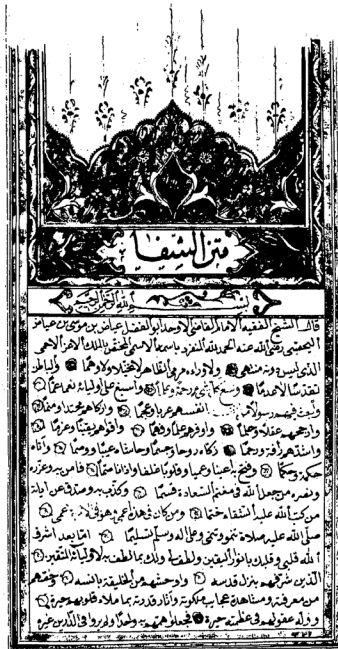 متن الشفا
بسم الله الرحمن الرحيم
قال الشيخ الفقيه الامام القاضي الاوحد ابو الفضل عياض بن موسى بن عياض
اليحصبي رضي الله عنه الحمد لله المتفرد باسمه الاسمى المختص بالملك الاعز الاحمى
الذي ليس دونه منتهى ولا وراءه مرمى الظاهر لا تخيلا ووهما والباطن
تقدسا لا عدما وسع كل شئ رحمة وعلما واسبغ على اوليائه نعما عما
وبعث فيهم رسولا من انفسهم عربا وعجما وازكاهم محتدا ومنمى
وارجحهم عقلا وحلما واوفرهم علما وفهما واقواهم يقينا وعزما
واشدهم رأفة ورحما زكاه روحا وجسما وحاشاه عيبا ووصما وآتاه
حكمة وحكما وفتح به اعينا عميا وقلوبا غلفا واذانا صما فآمن به وعزره
ونصره من جعل الله في مغنم السعادة قسما وكذب به وصدف عن آياته
من كتب الله عليه الشقاء حتما ومن كان في هذه اعمى فهو في الآخرة اعمى
صلى الله عليه صلاة تنمو وتنمى وعلى آله وسلم تسليما اما بعد اشرق
الله قلبي وقلبك بانوار اليقين ولطف لي ولك بما لطف به لاوليائه المتقين
الذين شرفهم بنزل قدسه واوحشهم من الخليقة بانسه وخصهم
من معرفته ومشاهدة عجائب ملكوته وآثار قدرته بما ملاء قلوبهم حبرة
ووله عقولهم في عظمته حيرة فجعلوا همهم به واحدا ولم يروا في الدارين غيره